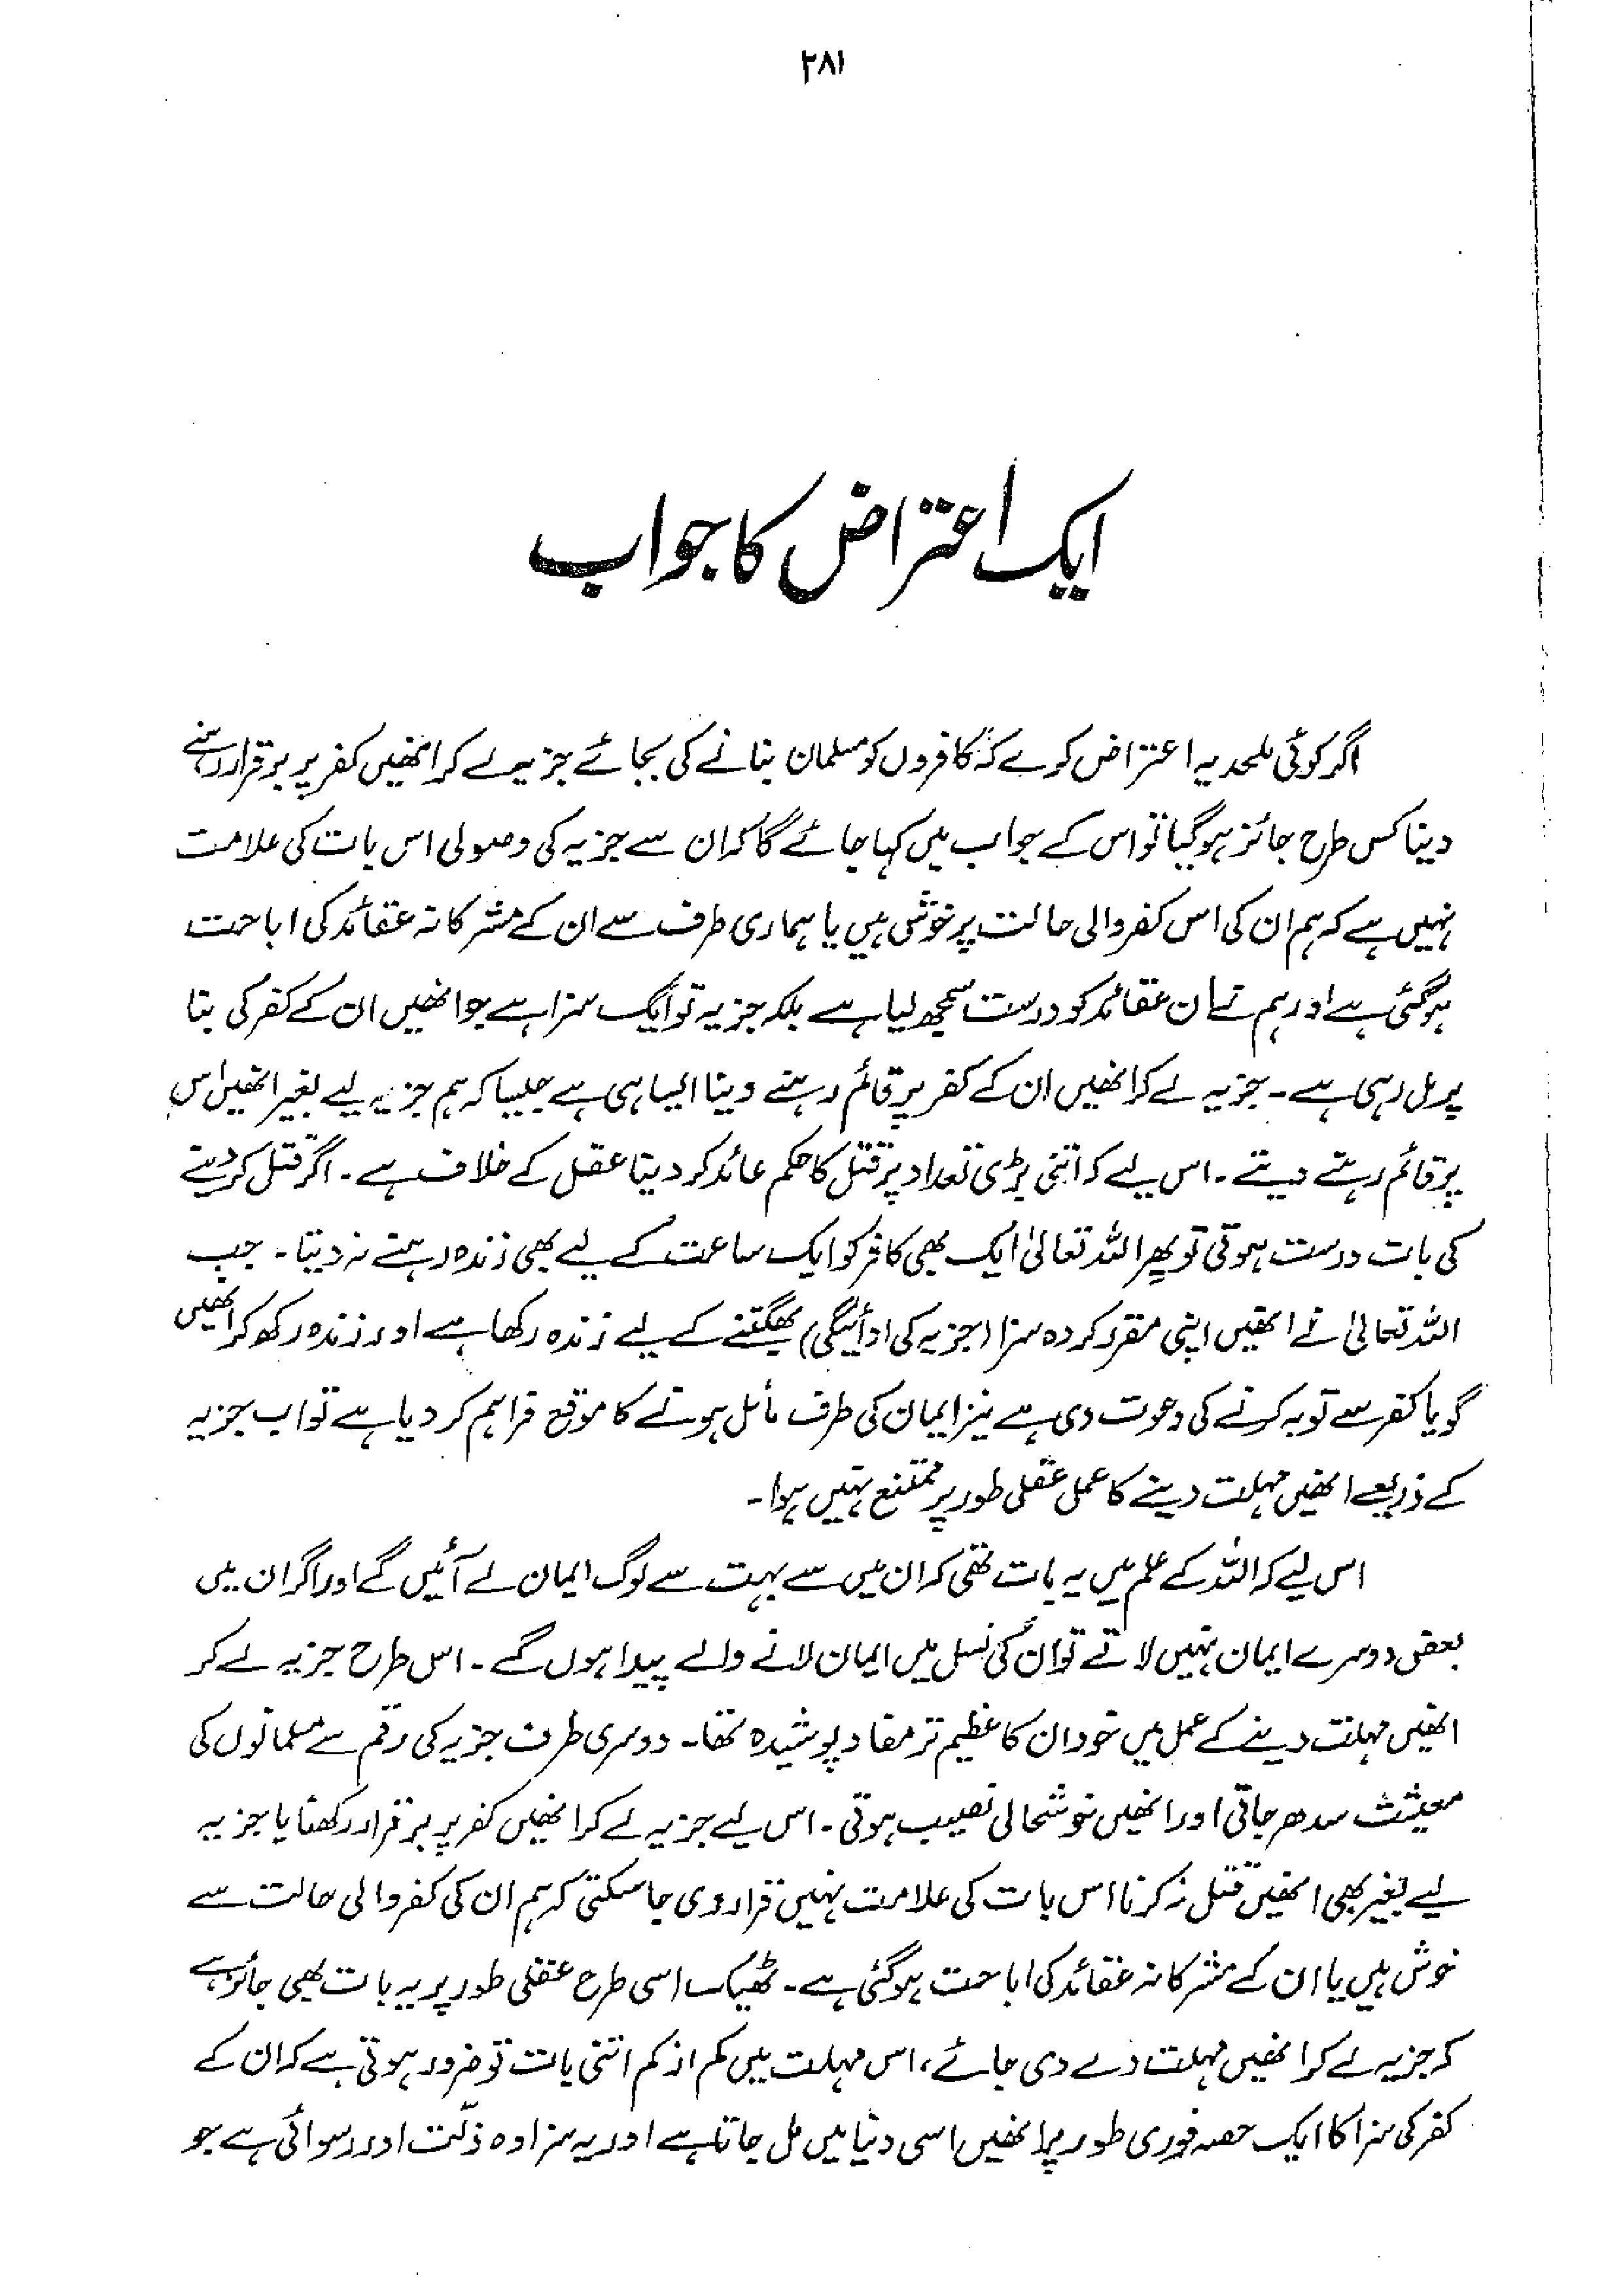 ۲۸۱
ایک اعتراض کا جواب
اگر کوئی ملحد یہ اعتراض کرے کہ کافروں کو مسلمان بنانے کی بجائے جزیہ لے کر انھیں کفر پر برقرار رہنے
دینا کس طرح جائز ہوگیا تو اس کے جواب میں کہا جائے گا کہ ان سے جزیہ کی وصولی اس بات کی علامت
نہیں ہے کہ ہم ان کی اس کفر والی حالت پر خوش ہیں یا ہماری طرف سے ان کے مشرکانہ عقائد کی اباحت
ہوگئی ہے اور ہم نے ان عقائد کو درست سمجھ لیا ہے بلکہ جزیہ تو ایک سزا ہے جو انھیں ان کے کفر کی بنا
پر مل رہی ہے۔ جزیہ لے کر انھیں ان کے کفر پر قائم رہنے دینا ایسا ہی ہے جیسا کہ ہم جزیہ لیے بغیر انھیں اس
پر قائم رہنے دیتے۔ اس لیے کہ اتنی بڑی تعداد پر قتل کا حکم عائد کر دینا عقل کے خلاف ہے۔ اگر قتل کر دینے
کی بات درست ہوتی تو پھر اللہ تعالیٰ ایک بھی کافر کو ایک ساعت کے لیے بھی زندہ رہنے نہ دیتا۔ جب
اللہ تعالیٰ نے انھیں اپنی مقرر کردہ سزا (جزیہ کی ادائیگی) بھگتنے کے لیے زندہ رکھا ہے اور زندہ رکھ کر انھیں
گویا کفر سے توبہ کرنے کی دعوت دی ہے نیز ایمان کی طرف مائل ہونے کا موقع فراہم کر دیا ہے تو اب جزیہ
کے ذریعے انھیں مہلت دینے کا عمل عقلی طور پر ممتنع نہیں ہوا۔
اس لیے کہ اللہ کے علم میں یہ بات تھی کہ ان میں سے بہت سے لوگ ایمان لے آئیں گے اور اگر ان میں
بعض دوسرے ایمان نہیں لاتے تو ان کی نسل میں ایمان لانے والے پیدا ہوں گے۔ اس طرح جزیہ لے کر
انھیں مہلت دینے کے عمل میں خود ان کا عظیم تر مفاد پوشیدہ تھا۔ دوسری طرف جزیہ کی رقم سے مسلمانوں کی
معیشت سدھر جاتی اور انھیں خوشحالی نصیب ہوتی۔ اس لیے جزیہ لے کر انھیں کفر پر برقرار رکھنا یا جزیہ
لیے بغیر بھی انھیں قتل نہ کرنا اس بات کی علامت نہیں قرار دی جاسکتی کہ ہم ان کی کفر والی حالت سے
خوش ہیں یا ان کے مشرکانہ عقائد کی اباحت ہوگئی ہے۔ ٹھیک اسی طرح عقلی طور پر یہ بات بھی جائز ہے
کہ جزیہ لے کر انھیں مہلت دے دی جائے، اس مہلت میں کم از کم اتنی بات تو ضرور ہوتی ہے کہ ان کے
کفر کی سزا کا ایک حصہ فوری طور پر انھیں اسی دنیا میں مل جاتا ہے اور یہ سزا وہ ذلّت اور رسوائی ہے جو